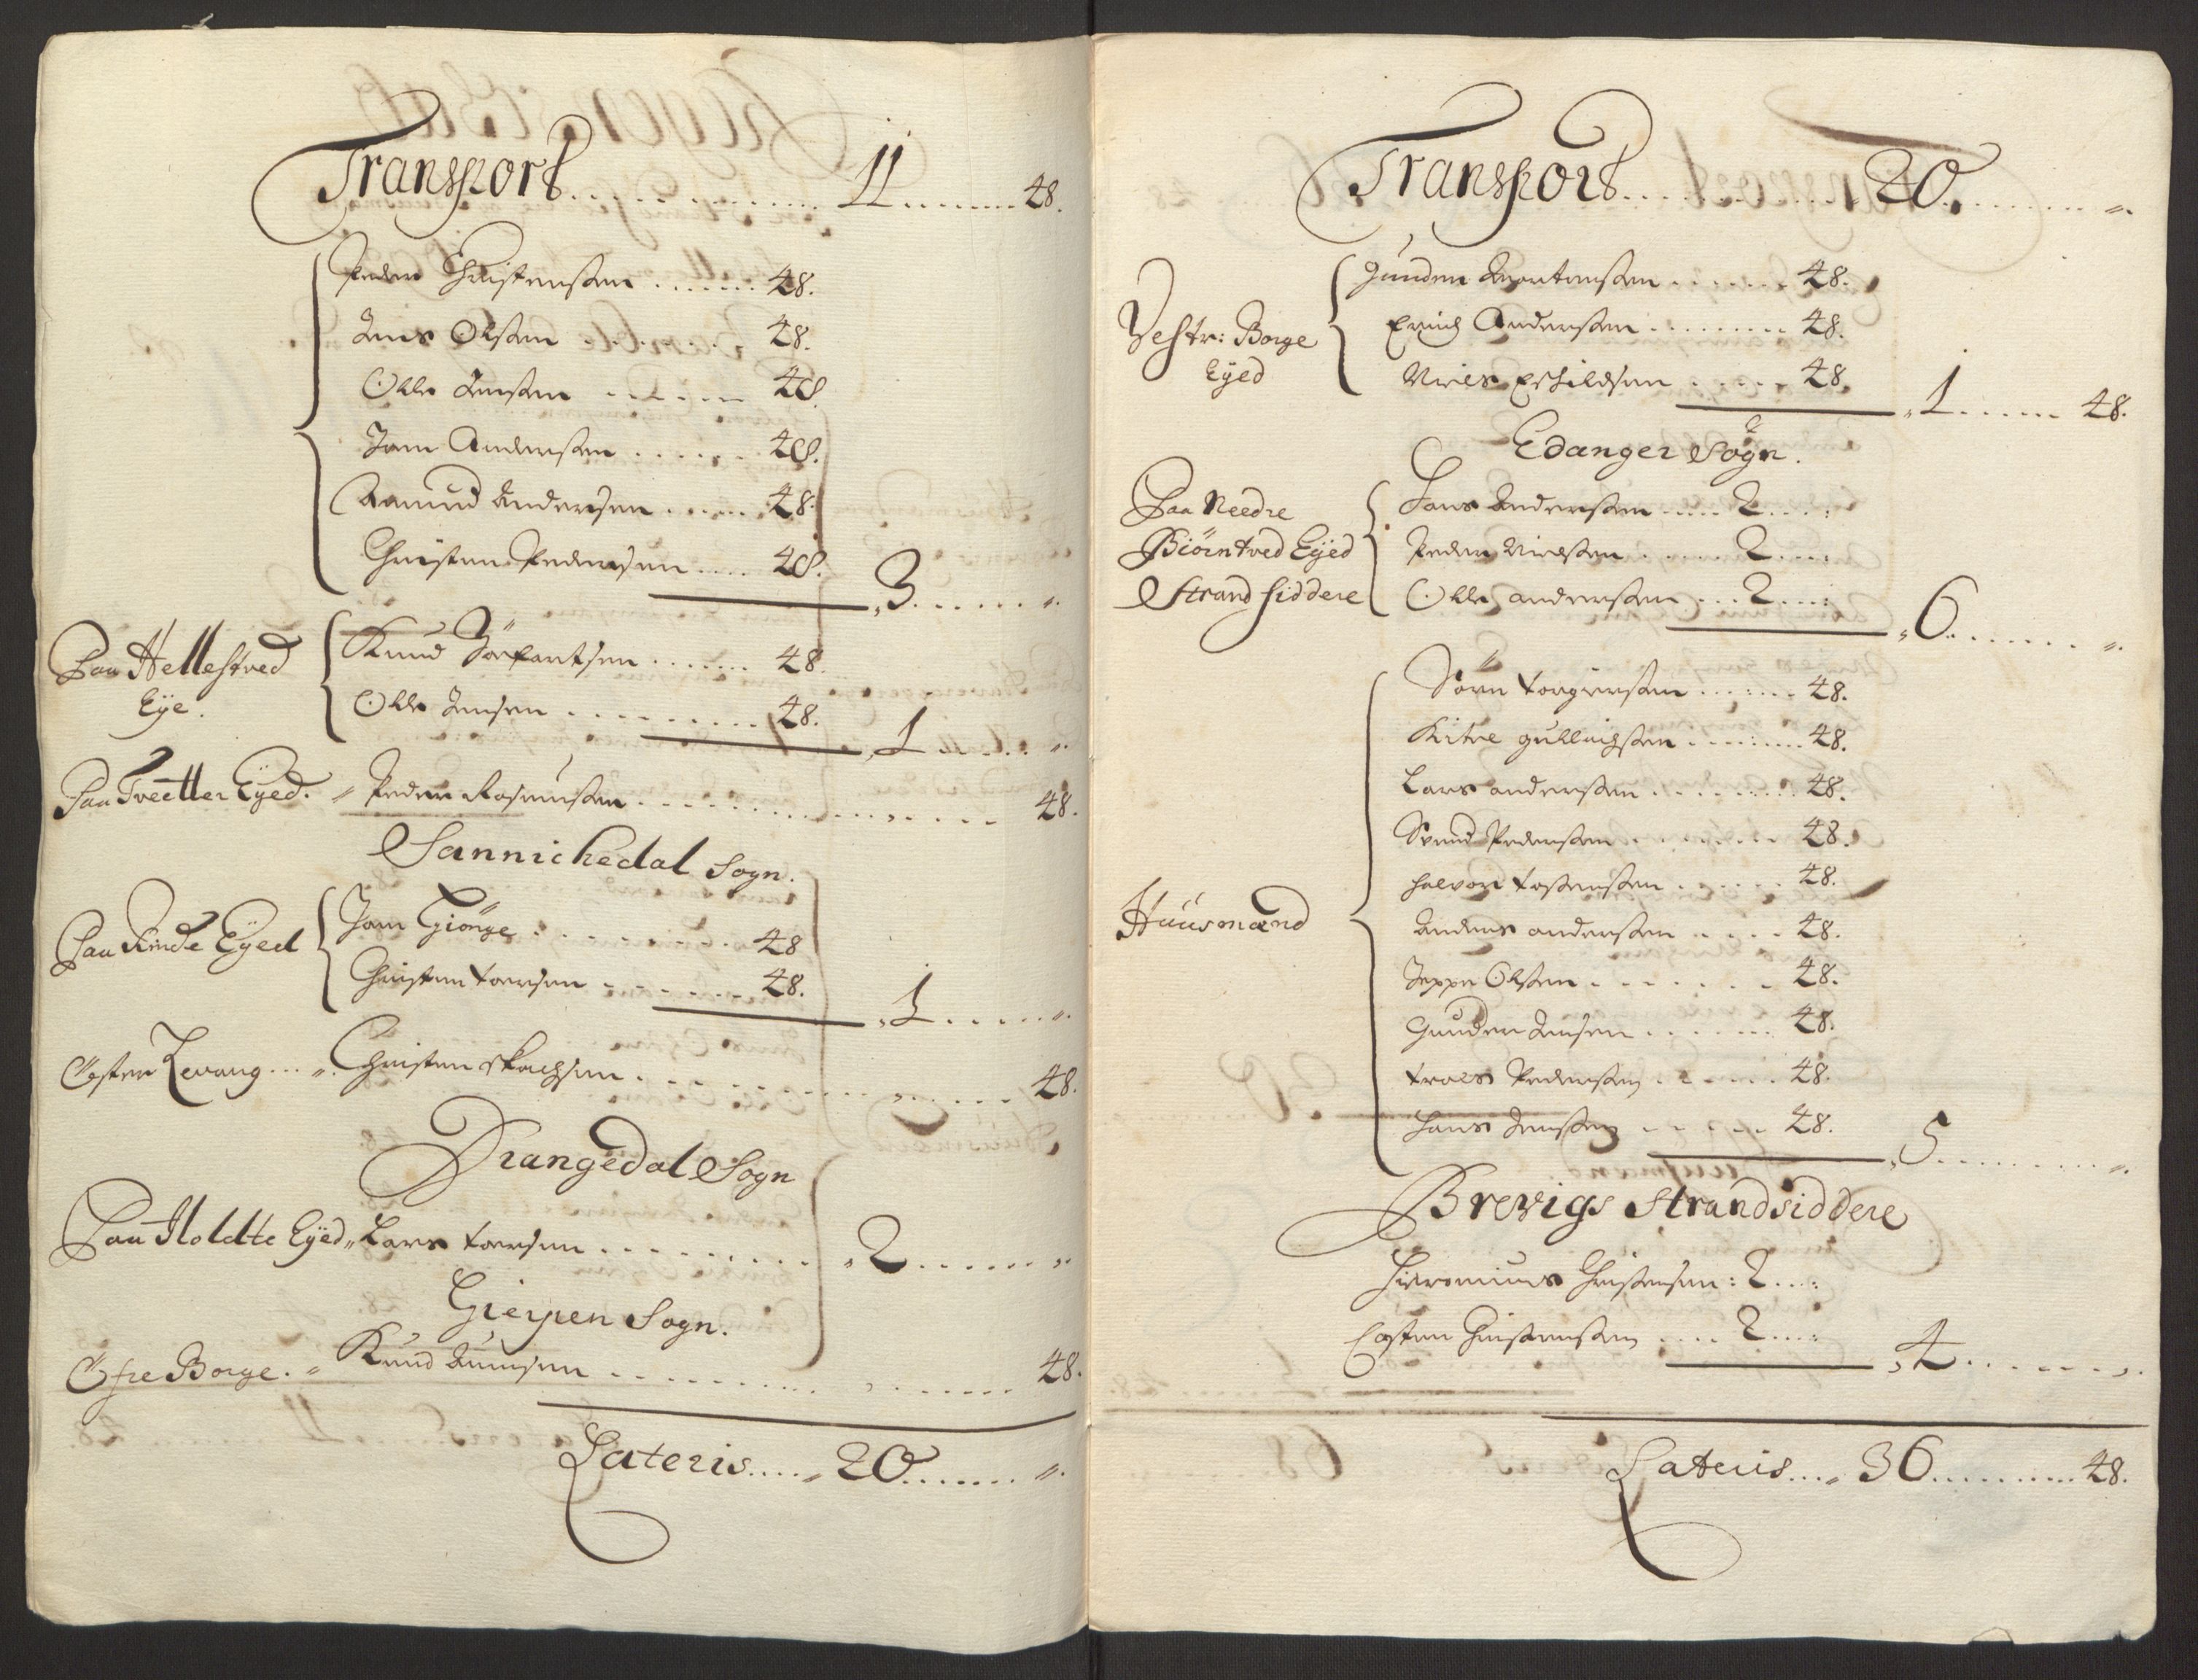 Transport ............... 11 ....... 48.
Peder Christensen ...... 48.
Jens Olsen ....... 48.
Olle Jensen ...... 48.
Jan Andersen ...... 48.
Aamund Andersen ..... 48.
Christen Pedersen .... 48.
„ 3 ...... „.
Paa Hellestved Eye. Knud ....... 48.
Olle Jensen ......... 48.
„ 1 ..... „.
Paa Tvetter Eÿed. „ Peder Rasmusen ............ 48.
Sannichedal Sogn.
Paa Rinde Eÿed Jan Giönge ......... 48
Christen Torsen ....... 48.
„ 1 ...... „.
Øster Levang ... „ Christen ........... 48.
Drangedal Sogn
Paa Holdte Eÿed „ Lars Torsen ......... „ 2 ...... „.
Gierpen Sogn.
Øfre Borge. „ Knud Jensen ............ 48.
Lateris .... „ 20 ....... „.
Transport ......... 20. ........ „.
Vestr: Borge Eÿed Gunder Mortensen ...... 48.
Erich Andersen ........ 48.
Niels Eskildsen ..... 48.
„ 1 ...... 48.
Edanger Sogn.
Paa Needre Biörntved Eÿed Strand siddere
Hans Andersen .... 2 ....
Peder Nielsen ..... 2 ....
Olle andersen .... 2 ....
„ 6 ....... „.
Huusmænd
Sörn Torgiersen ....... 48.
Kitel gullichsen ....... 48.
Lars andersen ........ 48.
Svend Pedersen ........ 48.
Halvor Tostensen ...... 48.
Anders andersen ..... 48.
Jeppe Olsen ....... 48.
Gunder Jensen ...... 48.
Troels Pedersen ..... 48.
Hans Jensen ..... 48.
„ 5 ........ „.
Brevigs Strandsiddere
Hieronimus Christensen: 2 ....
Casten Christensen .... 2 ....
„ 4 ....... „.
Lateris ... „ 36 ......... 48.